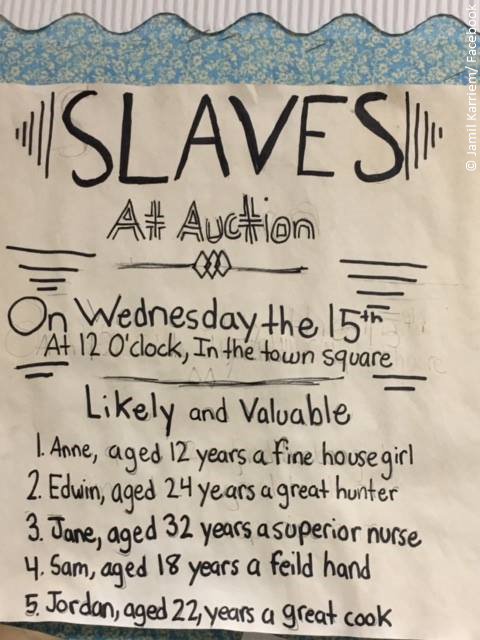 © Jamil Karriem/ Facebook
SLAVES
At Auction
On Wednesday the 15th
At 12 O'clock, In the town square
Likely and Valuable
1. Anne, aged 12 years a fine house girl
2. Edwin, aged 24 years a great hunter
3. Jane, aged 32 years a superior nurse
4. Sam, aged 18 years a feild hand
5. Jordan, aged 22, years a great cook